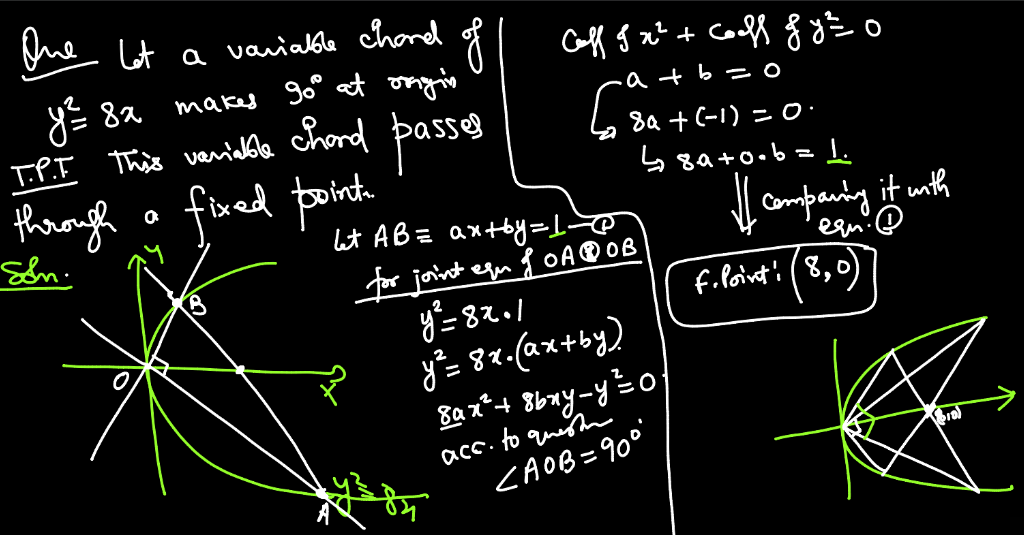 Que Let a variable chord of
y² = 8x makes 90° at origin
T.P.T This variable chord passes
through a fixed point.
Soln.
Y
B
O
X
A
y² = 8x
Let AB ≡ ax+by=1 — ①
for joint eqn of OA & OB
y² = 8x.1
y² = 8x.(ax+by)
8ax² + 8bxy - y² = 0
acc. to question
∠AOB = 90°
Coeff of x² + coeff of y² = 0
a + b = 0
8a + (-1) = 0.
↳ 8a + 0.b = 1.
comparing it with
eqn. ①
F. Point: (8,0)
(8,0)